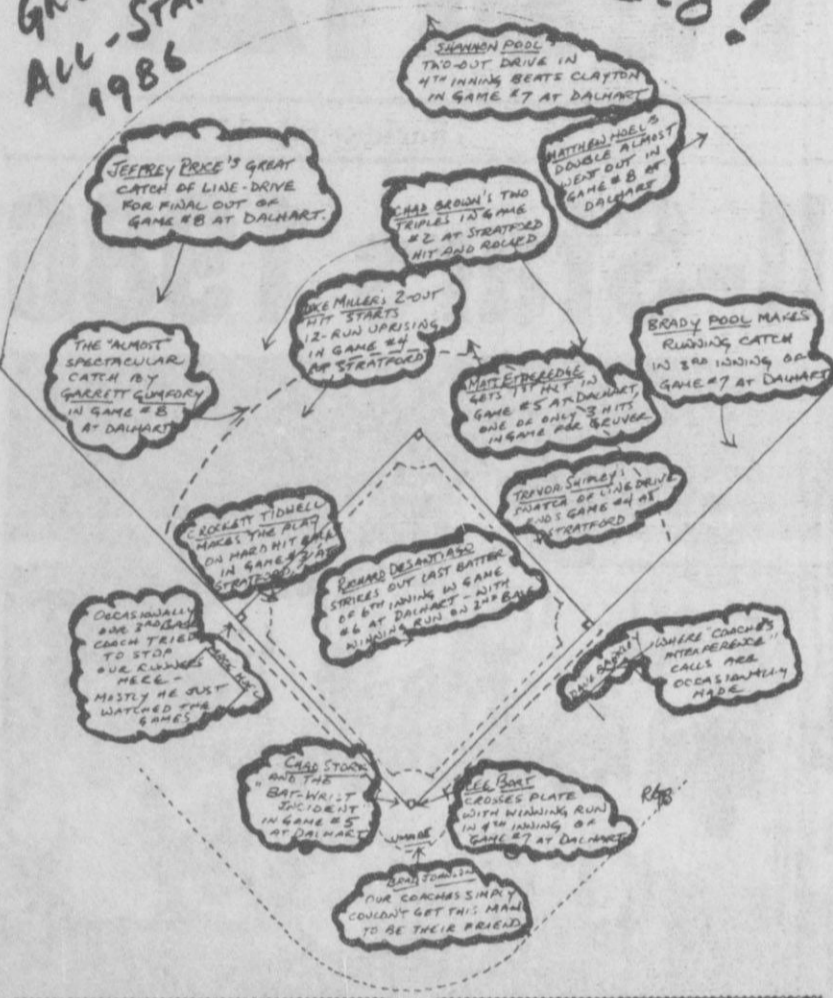 ALL-STAR
1986
SHANNON POOL'S
TWO-OUT DRIVE IN
4TH INNING BEATS CLAYTON
IN GAME #7 AT DALHART
MATTHEW HOEL'S
DOUBLE ALMOST
WENT OUT IN
GAME #8 AT
DALHART
JEFFREY PRICE'S GREAT
CATCH OF LINE-DRIVE
FOR FINAL OUT OF
GAME #8 AT DALHART.
CHAD BROWN'S TWO
TRIPLES IN GAME
#2 AT STRATFORD
HIT AND ROLLED
MILLERS 2-OUT
HIT STARTS
12-RUN UPRISING
IN GAME #4
AT STRATFORD
THE "ALMOST"
SPECTACULAR
CATCH BY
GARRETT GUMFORY
IN GAME #8
AT DALHART
BRADY POOL MAKES
RUNNING CATCH
IN 3RD INNING OF
GAME #7 AT DALHART
MATT ETHEREDGE
GETS 1ST HIT IN
GAME #5 AT DALHART,
ONE OF ONLY 3 HITS
IN GAME FOR GRUVER
TREVOR SHIPLEY'S
SNATCH OF LINE DRIVE
ENDS GAME #4 AT
STRATFORD
CROCKETT TIDWELL
MAKES THE PLAY
ON HARD HIT BALL
IN GAME AT
STRATFORD
RICHARD DESANTIAGO
STRIKES OUT LAST BATTER
OF 6TH INNING IN GAME
#6 AT DALHART - WITH
WINNING RUN ON 2ND BASE
OCCASIONALLY
OUR 3RD BASE
COACH TRIED
TO STOP
OUR RUNNERS
HERE -
MOSTLY HE JUST
WATCHED THE
GAMES
WHERE "COACH'S
INTERFERENCE"
CALLS ARE
OCCASIONALLY
MADE
CHAD STORK
AND THE
BAT-WRIST
INCIDENT
IN GAME #5
AT DALHART
LEE BORT
CROSSES PLATE
WITH WINNING RUN
IN 4TH INNING OF
GAME #7 AT DALHART
UMPIRE
JOHNSON
OUR COACHES SIMPLY
COULDN'T GET THIS MAN
TO BE THEIR FRIEND